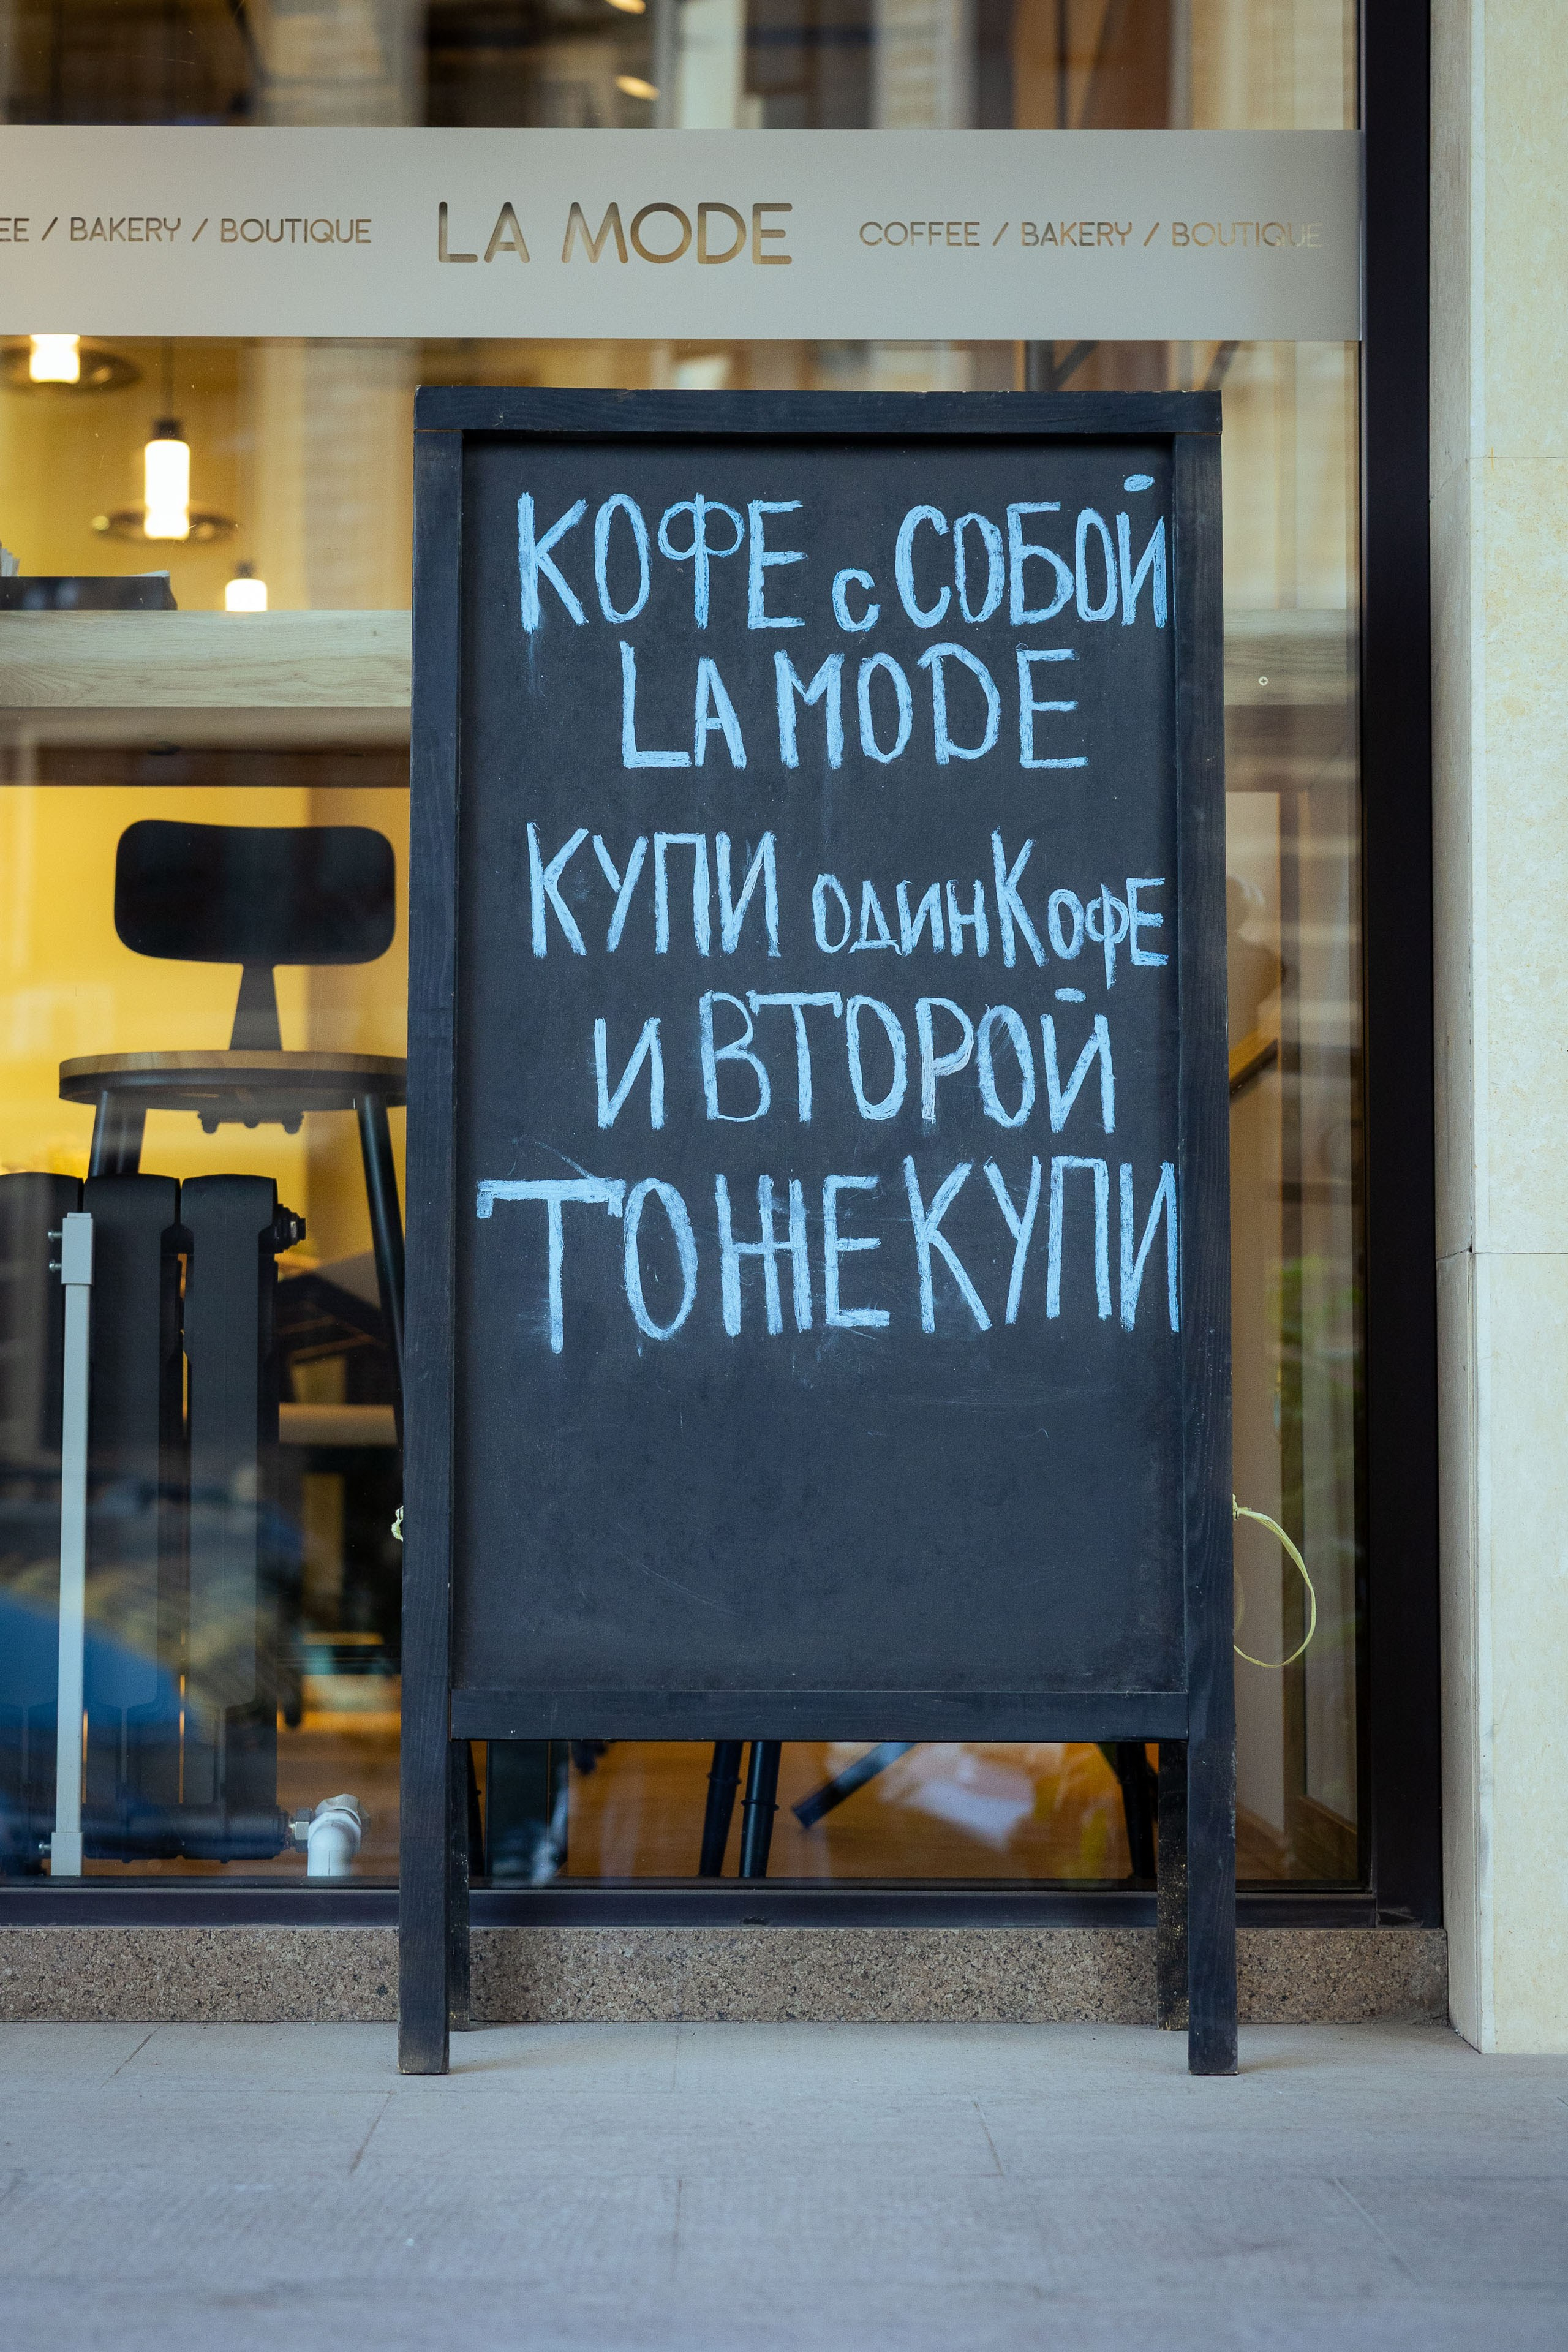 EE / BAKERY / BOUTIQUE LA MODE COFFEE / BAKERY / BOUTIQUE
КОФЕ с СОБОЙ
LA MODE
КУПИ ОДИН КОФЕ
И ВТОРОЙ
ТОЖЕ КУПИ